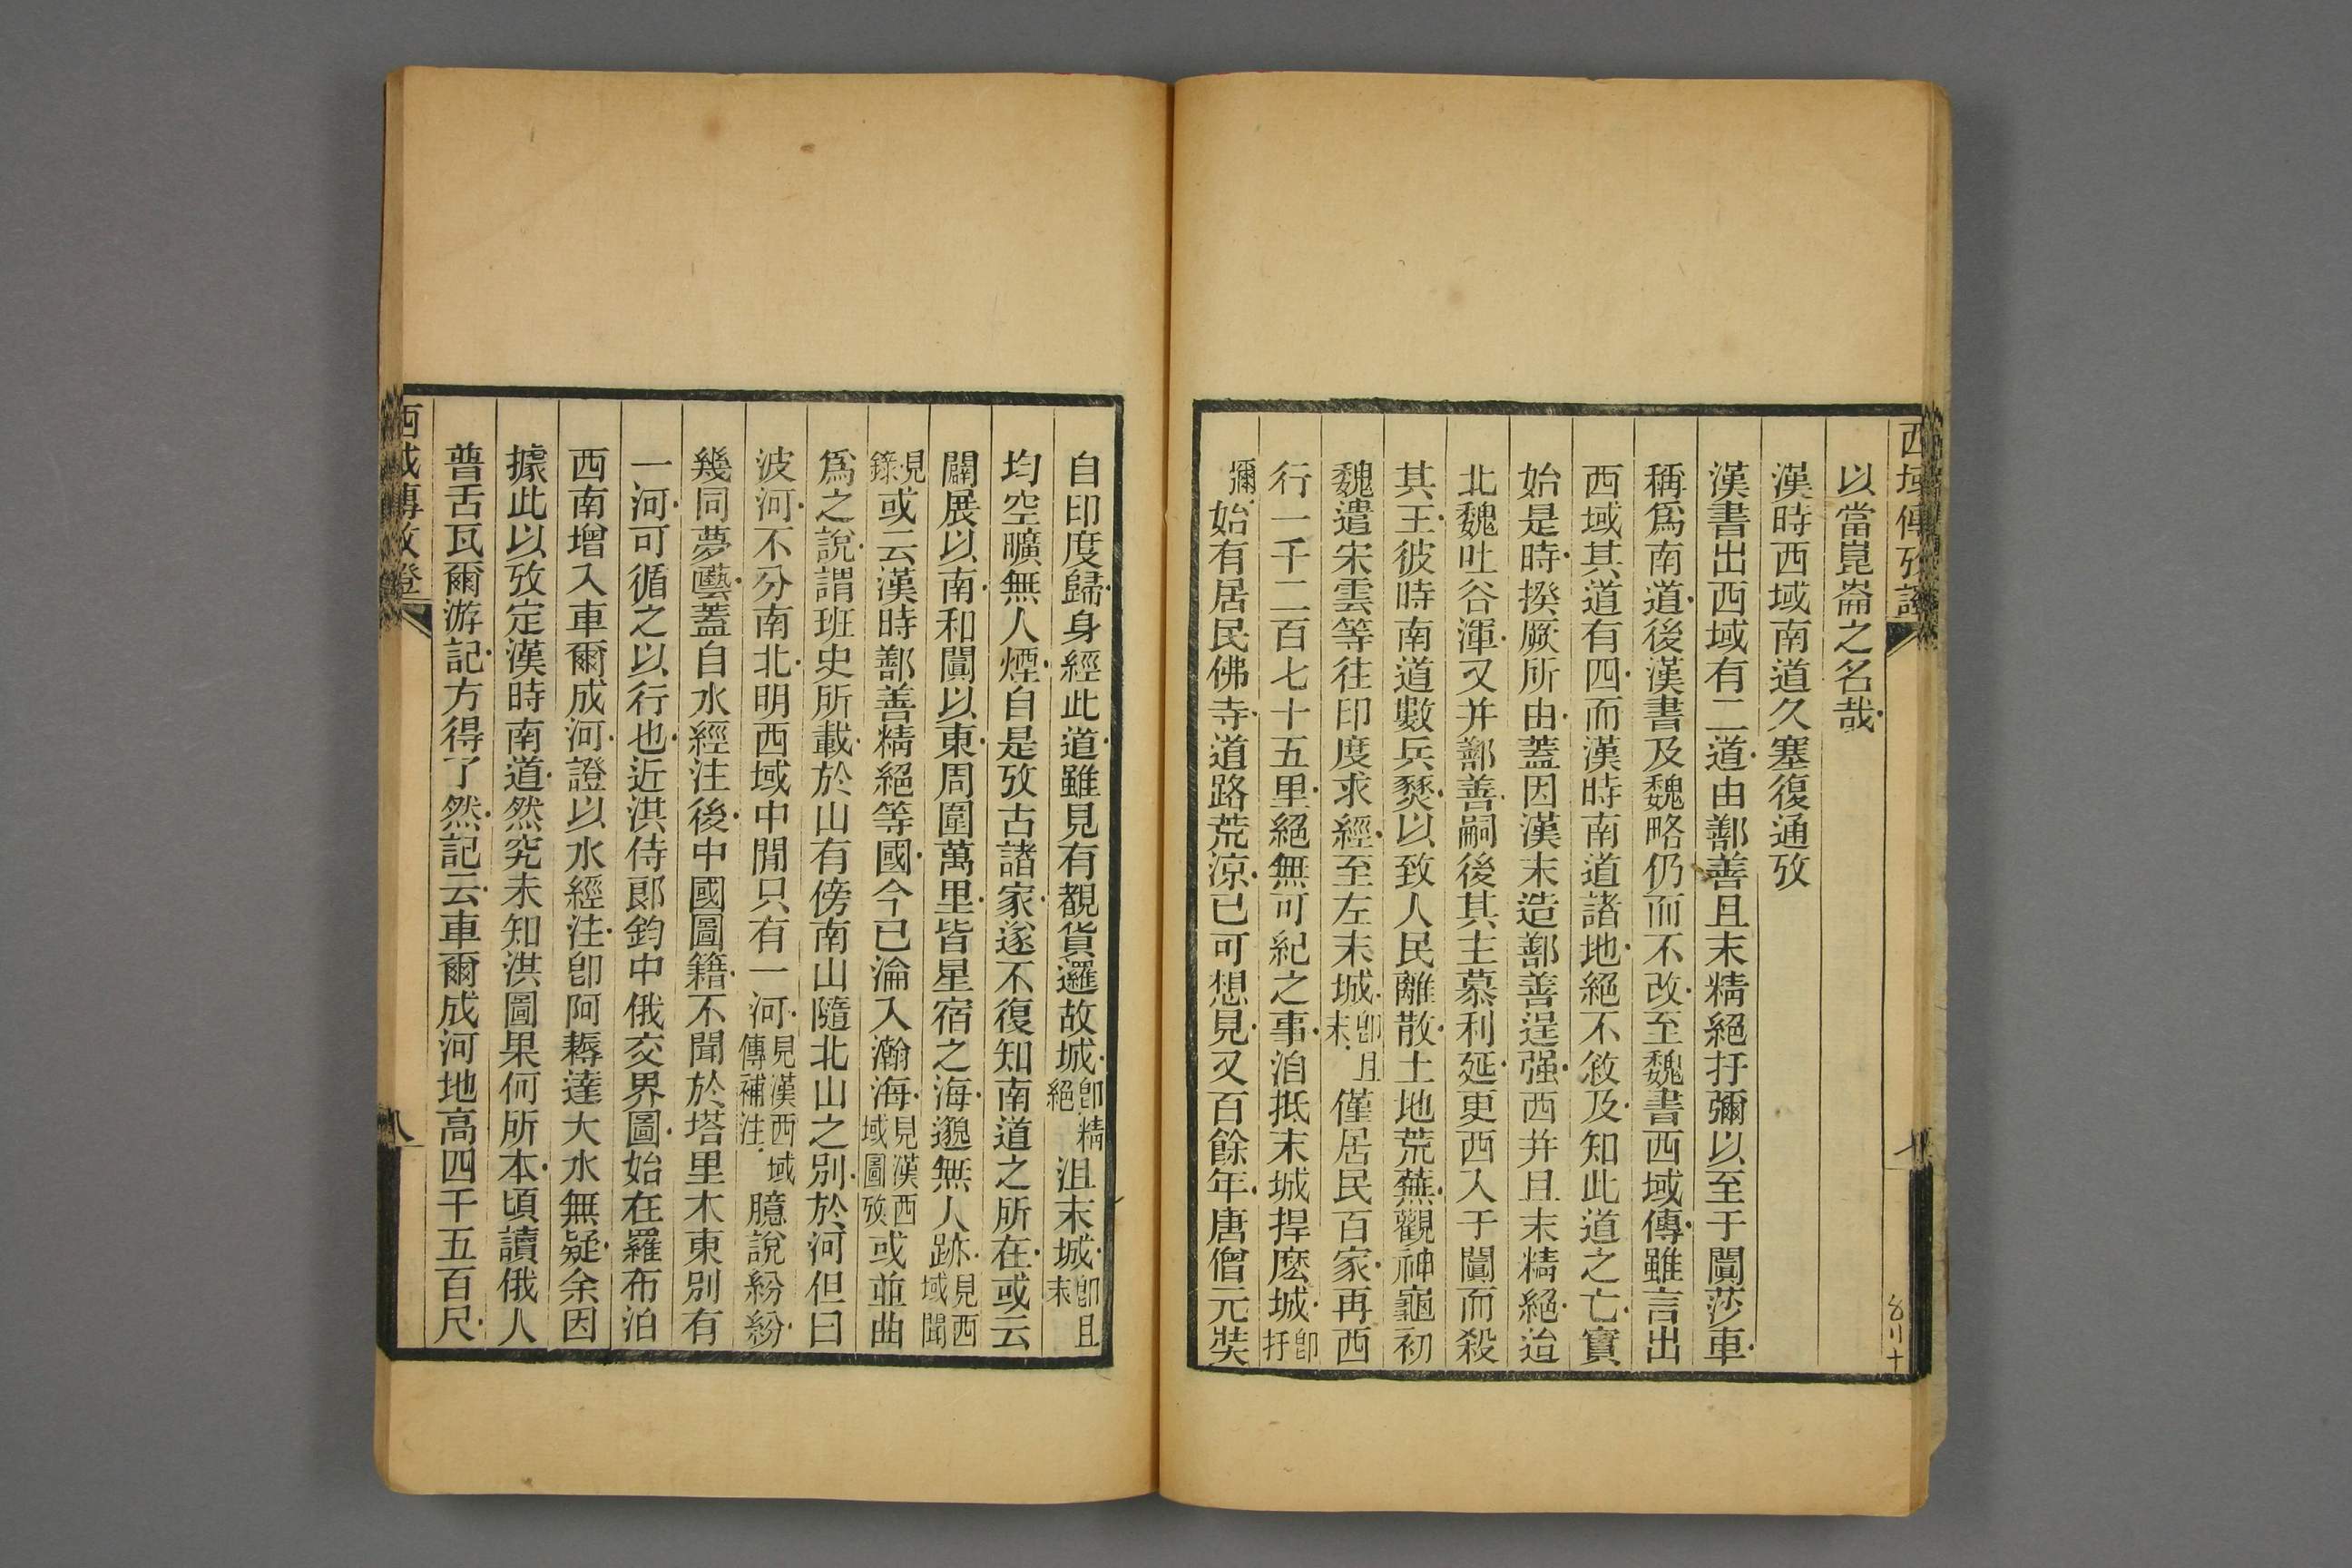 西域傳攷證
以當崑崙之名哉
漢時西域南道久塞復通攷
漢書出西域有二道由鄯善且末精絕扜彌以至于闐莎車
稱爲南道後漢書及魏略仍而不改至魏書西域傳雖言出
西域其道有四而漢時南道諸地絕不敘及知此道之亡實
始是時揆厥所由蓋因漢末造鄯善逞强西并且末精絕迨
北魏吐谷渾又并鄯善嗣後其主慕利延更西入于闐而殺
其王彼時南道數兵燹以致人民離散土地荒蕪觀神龜初
魏遣宋雲等往印度求經至左末城卽且末僅居民百家再西
行一千二百七十五里絕無可紀之事洎抵末城捍麽城卽扜
彌始有居民佛寺道路荒涼已可想見又百餘年唐僧元奘
自印度歸身經此道雖見有覩貨邏故城卽精絕沮末城卽且末
均空曠無人煙自是攷古諸家遂不復知南道之所在或云
闢展以南和闐以東周圍萬里皆星宿之海邈無人跡見西域聞
見錄或云漢時鄯善精絕等國今已淪入瀚海見漢西域圖攷或並曲
爲之說謂班史所載於山有傍南山隨北山之別於河但曰
波河不分南北明西域中閒只有一河見漢西域傳補注臆說紛紛
幾同夢囈蓋自水經注後中國圖籍不聞於塔里木東別有
一河可循之以行也近洪侍郎鈞中俄交界圖始在羅布泊
西南增入車爾成河證以水經注卽阿耨達大水無疑余因
據此以攷定漢時南道然究未知洪圖果何所本頃讀俄人
普舌瓦爾游記方得了然記云車爾成河地高四千五百尺
西域傳攷證
八